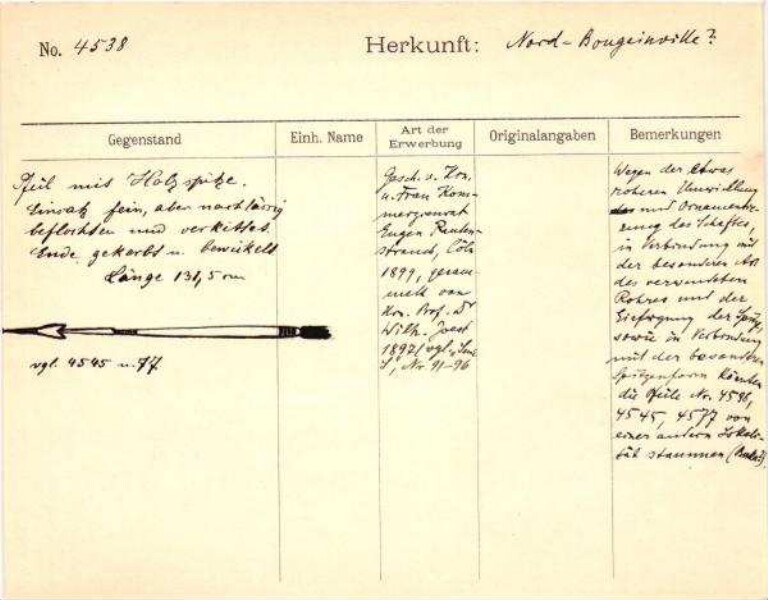 No. 4538
Herkunft: Nord-Bougeinville?
Gegenstand
Einh. Name
Art der Erwerbung
Originalangaben
Bemerkungen
Pfeil mit Holzspitze.
Einsatz fein, aber nachlässig
beflochten und verkittet.
Ende gekerbt u. bewickelt
Länge 131,5 cm
vgl. 4545 u. 77
Gesch. v. Hrn.
u. Frau Kom-
merzienrat
Eugen Rauten-
strauch, Cöln
1899, gesam-
melt von
Hrn. Prof. Dr
Wilh. Joest
1897 (vgl.
Nr. 91-96
Wegen der etwas
roheren Umwicklung
und Ornamentie-
rung des Schaftes,
in Verbindung mit
der besonderen Art
des verwendeten
Rohres und der
Einfügung der Spitze,
sowie in Verbindung
mit der besonderen
Spitzenform könnten
die Pfeile Nr. 4536,
4545, 4577 von
einer andern Lokali-
tät stammen